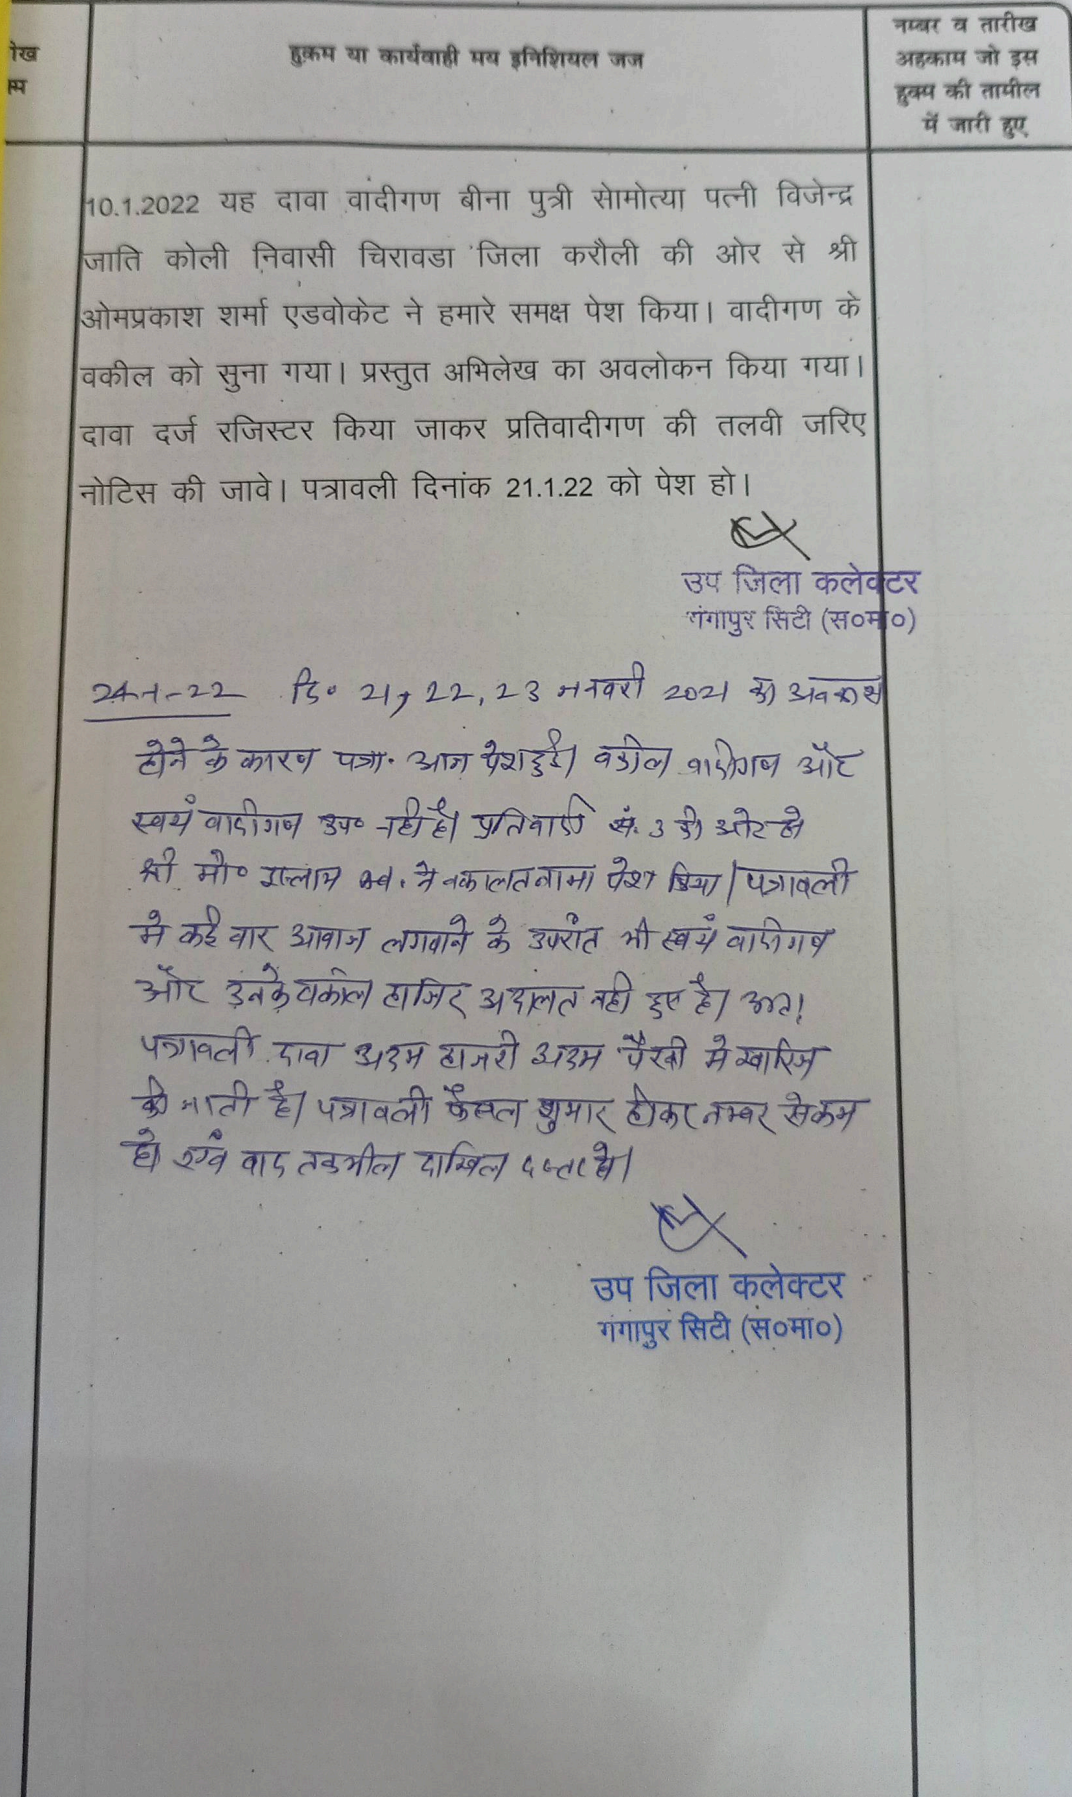 ेख
क्म
हुक्म या कार्यवाही मय इनिशियल जज
नम्बर व तारीख
अहकाम जो इस
हुक्म की तामील
में जारी हुए
10.1.2022 यह दावा वादीगण बीना पुत्री सोमोत्या पत्नी विजेन्द्र
जाति कोली निवासी चिरावडा जिला करौली की ओर से श्री
ओमप्रकाश शर्मा एडवोकेट ने हमारे समक्ष पेश किया। वादीगण के
वकील को सुना गया। प्रस्तुत अभिलेख का अवलोकन किया गया।
दावा दर्ज रजिस्टर किया जाकर प्रतिवादीगण की तलवी जरिए
नोटिस की जावे। पत्रावली दिनांक 21.1.22 को पेश हो।
उप जिला कलेक्टर
गंगापुर सिटी (स०मा०)
24-1-22 दि० 21, 22, 23 जनवरी 2021 का अवकाश
होने के कारण पत्रा. आज पेश हुई। वकील वादीगण और
स्वयं वादीगण उप० नही है। प्रतिवादी सं. 3 की ओर से
श्री मो० इस्लाम ने वकालतनामा पेश किया। पत्रावली
मे कई बार आवाज लगवाने के उपरांत भी स्वयं वादीगण
और उनके वकील हाजिर अदालत नही हुए है। अतः
पत्रावली दावा अदम हाजरी अदम पैरवी मे खारिज
की जाती है। पत्रावली फैसल शुमार होकर नम्बर से कम
हो एवं बाद तकमील दाखिल दफ्तर हो।
उप जिला कलेक्टर
गंगापुर सिटी (स०मा०)